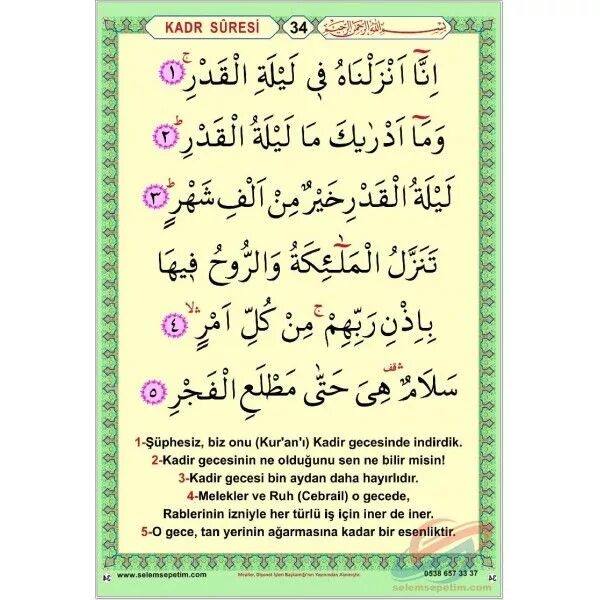 KADR SÛRESİ 34 بِسْمِ اللّٰهِ الرَّحْمٰنِ الرَّحِيمِ
اِنَّٓا اَنْزَلْنَاهُ فٖى لَيْلَةِ الْقَدْرِۚ ١
وَمَٓا اَدْرٰيكَ مَا لَيْلَةُ الْقَدْرِۜ ٢
لَيْلَةُ الْقَدْرِ خَيْرٌ مِنْ اَلْفِ شَهْرٍۜ ٣
تَنَزَّلُ الْمَلٰٓئِكَةُ وَالرُّوحُ فٖيهَا
بِاِذْنِ رَبِّهِمْۚ مِنْ كُلِّ اَمْرٍۙ ٤
سَلَامٌ۠ هِىَ حَتّٰى مَطْلَعِ الْفَجْرِ ٥
1-Şüphesiz, biz onu (Kur'an'ı) Kadir gecesinde indirdik.
2-Kadir gecesinin ne olduğunu sen ne bilir misin!
3-Kadir gecesi bin aydan daha hayırlıdır.
4-Melekler ve Ruh (Cebrail) o gecede,
Rablerinin izniyle her türlü iş için iner de iner.
5-O gece, tan yerinin ağarmasına kadar bir esenliktir.
www.selemsepetim.com Mealler, Diyanet İşleri Başkanlığı'nın Yayınından Alınmıştır. 0538 657 33 37
selemsepetim.com